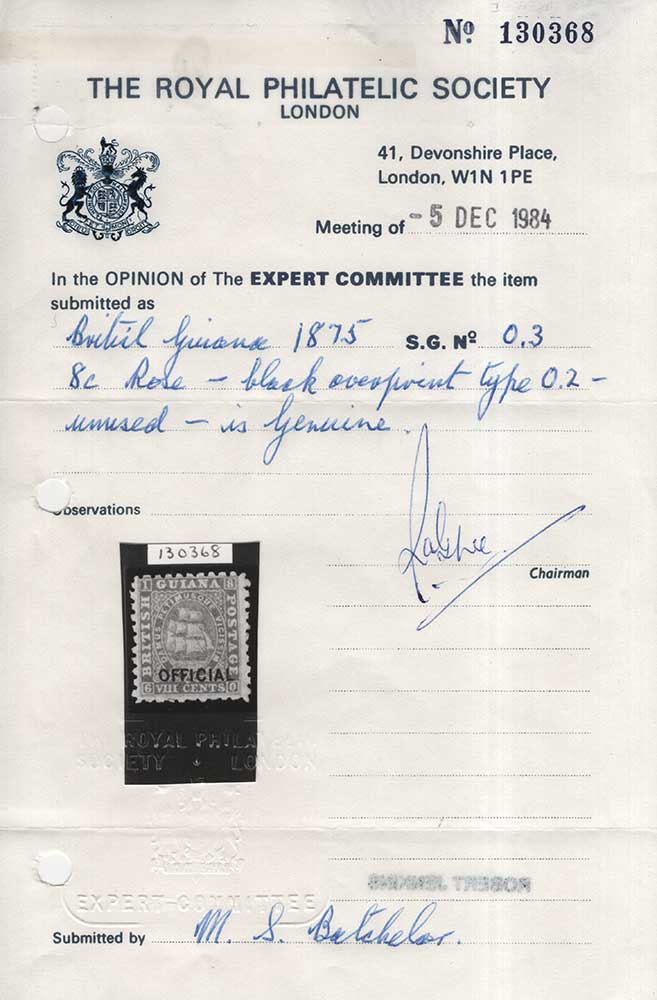 Nº 130368
THE ROYAL PHILATELIC SOCIETY
LONDON
41, Devonshire Place,
London, W1N 1PE
Meeting of -5 DEC 1984
In the OPINION of The EXPERT COMMITTEE the item
submitted as
British Guiana 1875 S.G. Nº 0.3
8c Rose - black overprint type 0.2 -
unused - is Genuine.
Observations
130368
1 GUIANA 8
BRITISH
POSTAGE
DAMUS PETIMUSQUE VICISSIM
OFFICIAL
6 VIII CENTS 0
Chairman
ROYAL PHILATELIC
SOCIETY LONDON
ROBERT JENKINS
EXPERT-COMMITTEE
Submitted by M. S. Batchelor.